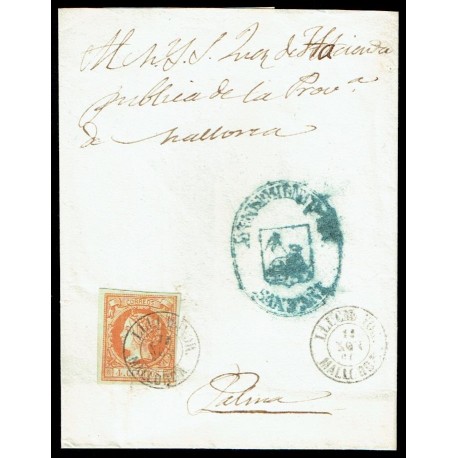 Al M. Y. S. Juez de Hacienda
publica de la Prov.ª
de Mallorca
AYUNTAMIENTO
CORREOS
LLUCMAYOR
MALLORCA
LLUCMAYOR
11
MALLORCA
Palma